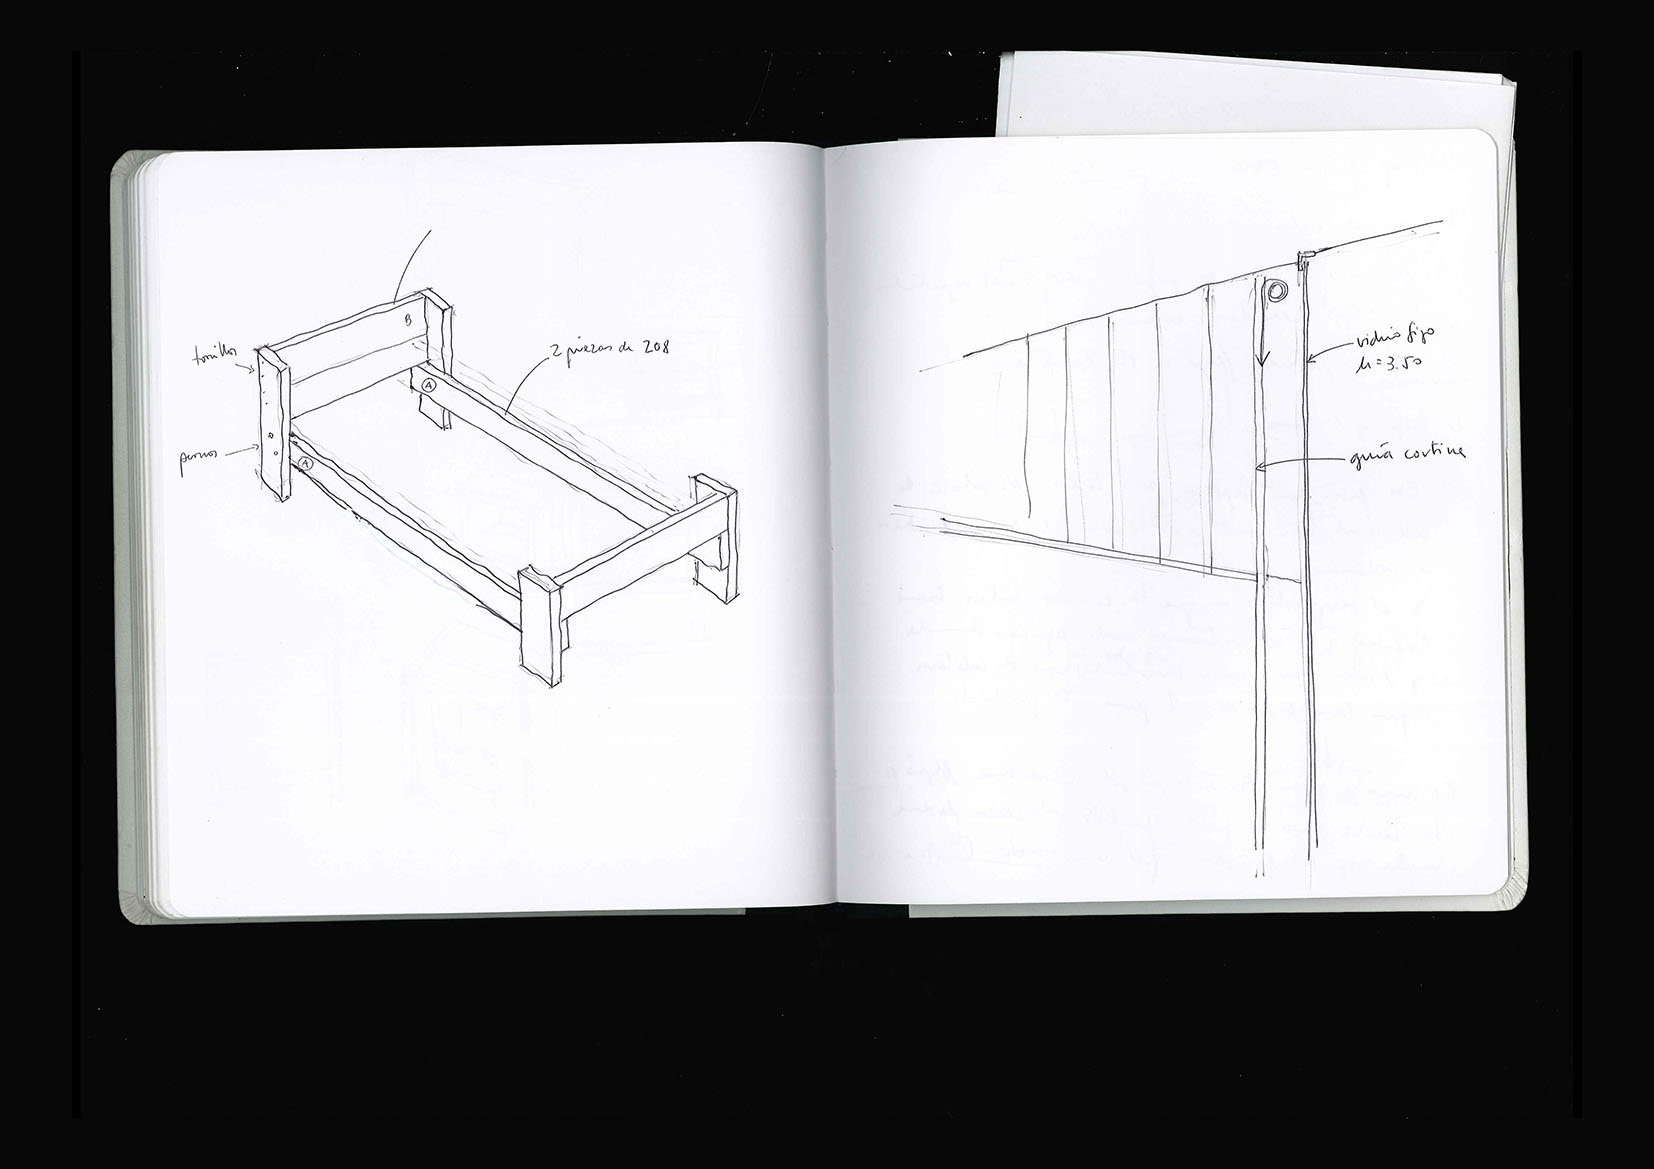 B
tornillos
2 piezas de 208
A
pernos
A
vidrio fijo
h=3.50
guía cortina